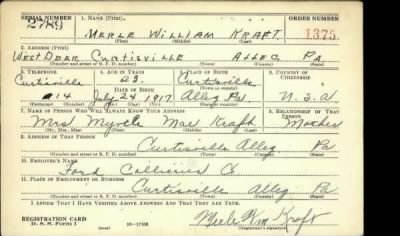 SERIAL NUMBER 1. NAME (Print) ORDER NUMBER
2789 MERLE WILLIAM KRAFT 1375
(First) (Middle) (Last)
2. ADDRESS (Print)
WEST DEER CURTISVILLE ALLEG PA.
(Number and street or R. F. D. number) (Town) (County) (State)
3. TELEPHONE 4. AGE IN YEARS 5. PLACE OF BIRTH 6. COUNTRY OF CITIZENSHIP
Curtisville 23 Curtisville
DATE OF BIRTH (Town or county)
914 July 24 1917 Alleg Pa. U.S.A.
(Exchange) (Number) (Mo.) (Day) (Yr.) (State or country)
7. NAME OF PERSON WHO WILL ALWAYS KNOW YOUR ADDRESS 8. RELATIONSHIP OF THAT PERSON
Mrs Myrtle Mae Kraft Mother
(Mr., Mrs., Miss) (First) (Middle) (Last)
9. ADDRESS OF THAT PERSON
Curtisville Alleg Pa
(Number and street or R. F. D. number) (Town) (County) (State)
10. EMPLOYER'S NAME
Ford Collieries Co
11. PLACE OF EMPLOYMENT OR BUSINESS
Curtisville Alleg Pa
(Number and street or R. F. D. number) (Town) (County) (State)
I AFFIRM THAT I HAVE VERIFIED ABOVE ANSWERS AND THAT THEY ARE TRUE.
REGISTRATION CARD
D. S. S. Form 1 16-17105 Merle Wm Kraft
(Registrant's signature)